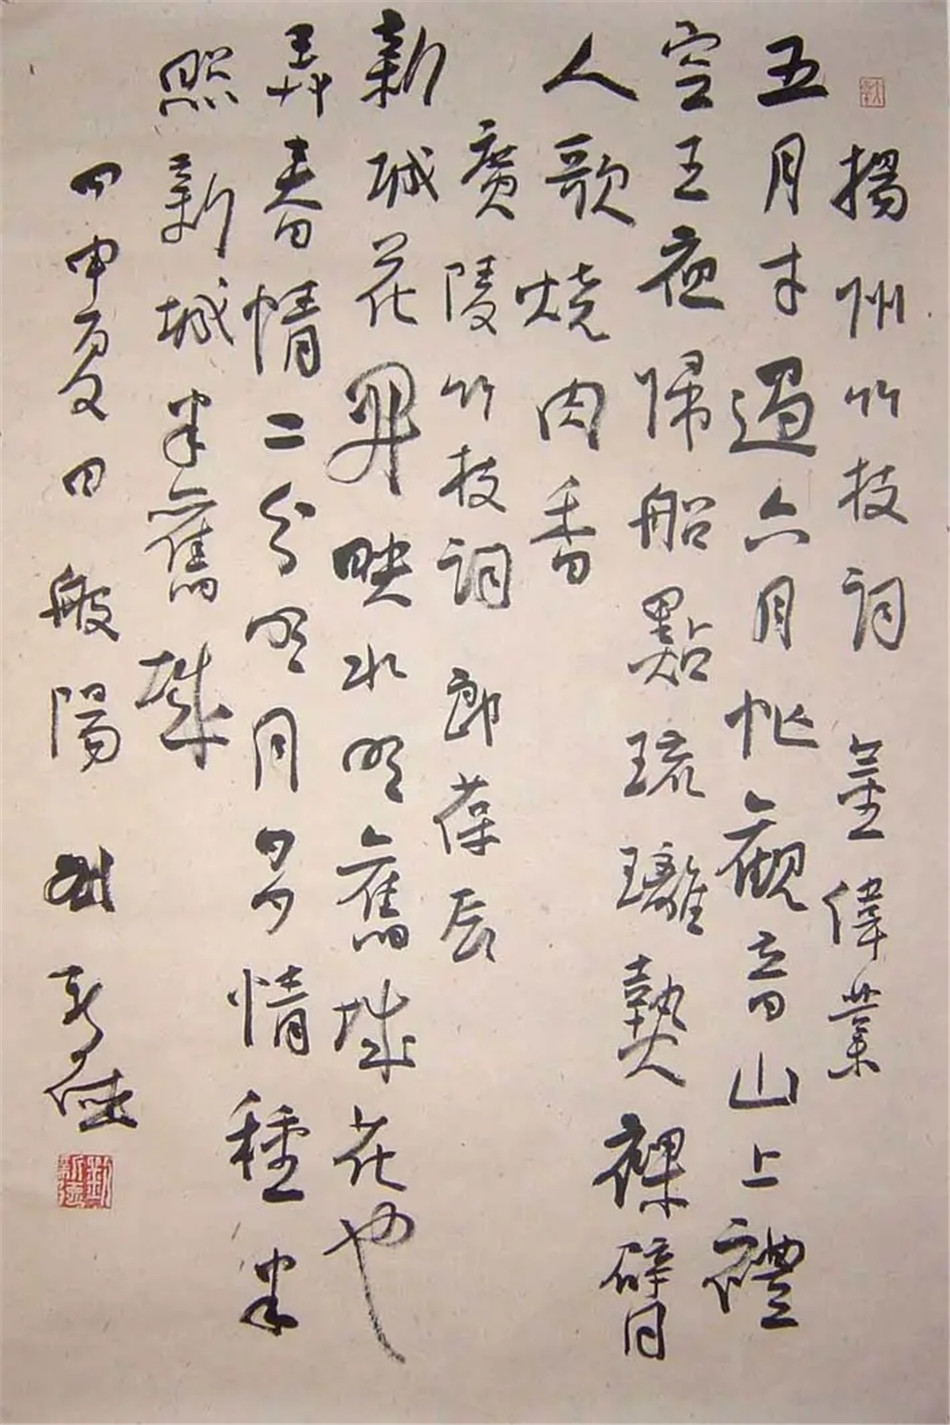 揚州竹枝詞 董偉業
五月才過六月忙觀音山上禮
空王夜歸船點琉璃熱裸臂
人歌燒肉香
廣陵竹枝詞 郎葆辰
新城花開映水明舊城花也
弄春情二分明月多情種半
照新城半舊城
甲申夏日般陽 刘